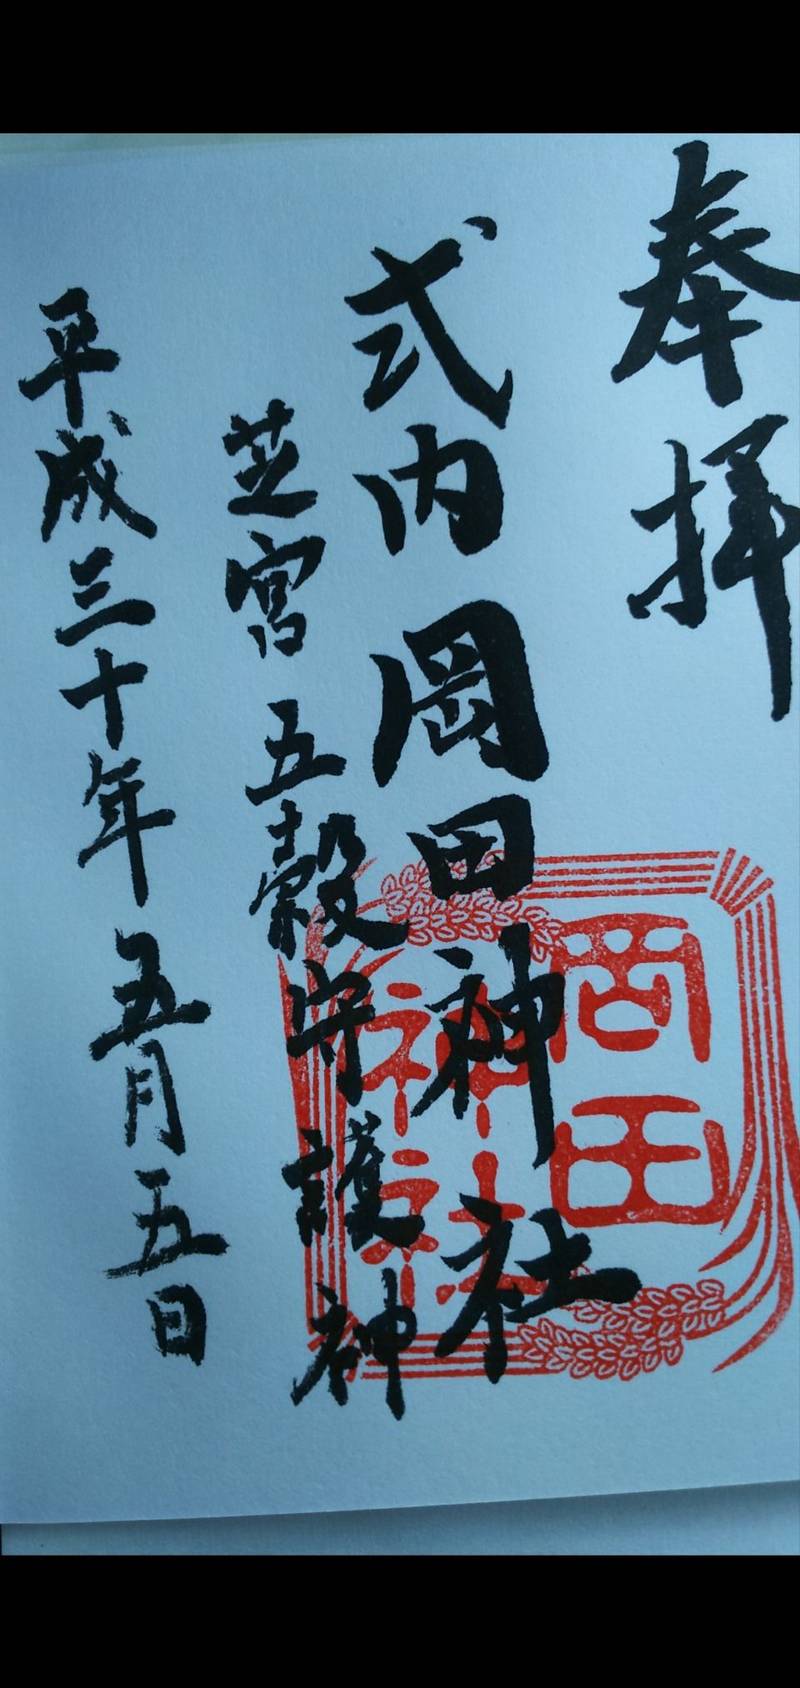 奉拝
式内 岡田神社
芝宮 五穀守護神
平成三十年五月五日
岡田
神社